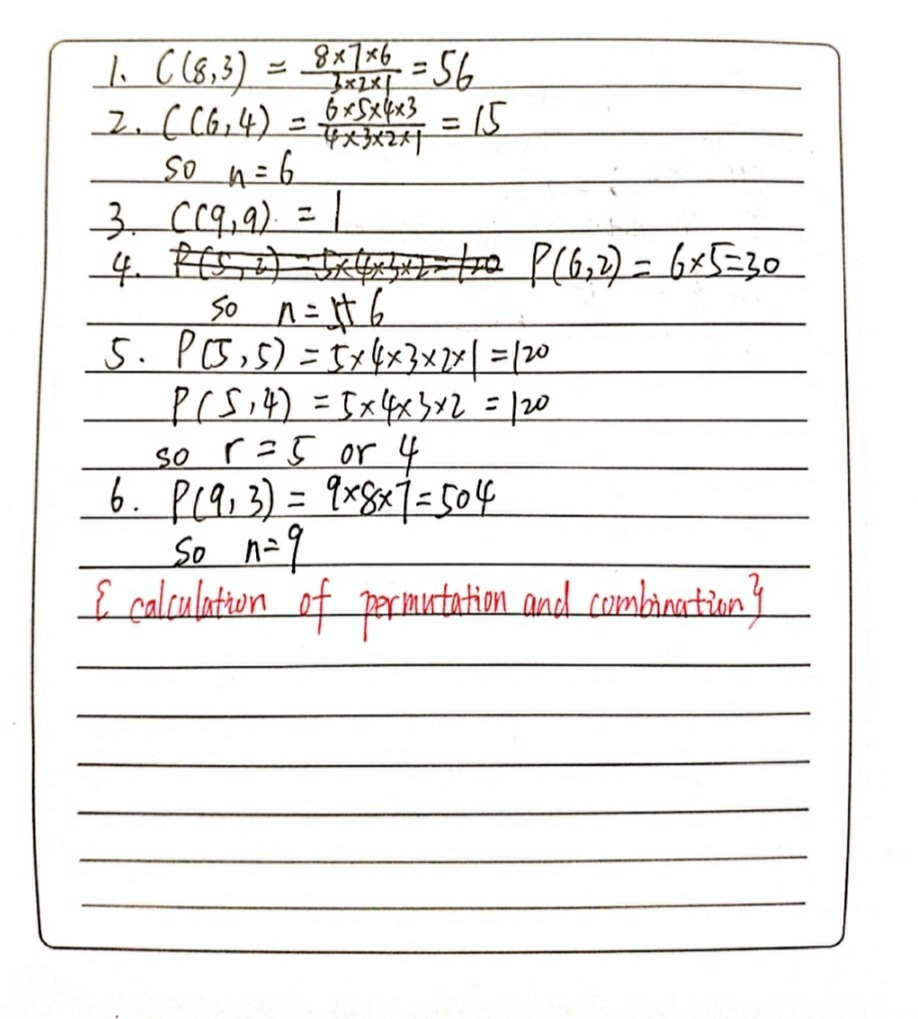 1. C(8,3) = 8×7×6 / 3×2×1 = 56
2. C(6,4) = 6×5×4×3 / 4×3×2×1 = 15
so n=6
3. C(9,9) = 1
4. P(5,2) = 5×4×3×2=120 P(6,2) = 6×5=30
so n= 6
5. P(5,5) = 5×4×3×2×1=120
P(5,4) = 5×4×3×2 =120
so r=5 or 4
6. P(9,3) = 9×8×7=504
so n=9
{calculation of permutation and combination}